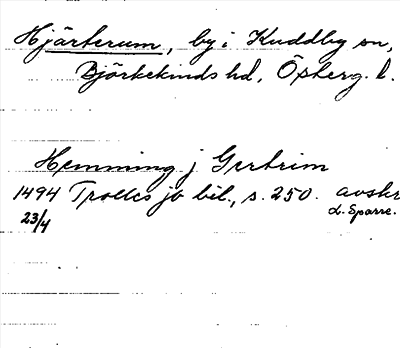 Hjärterum, by i Kuddby sn,
Björkekinds hd, Österg. l.
Hemming j Gertrim
1494 Trolles jb bil., s. 250. avskr
23/4 L. Sparre.